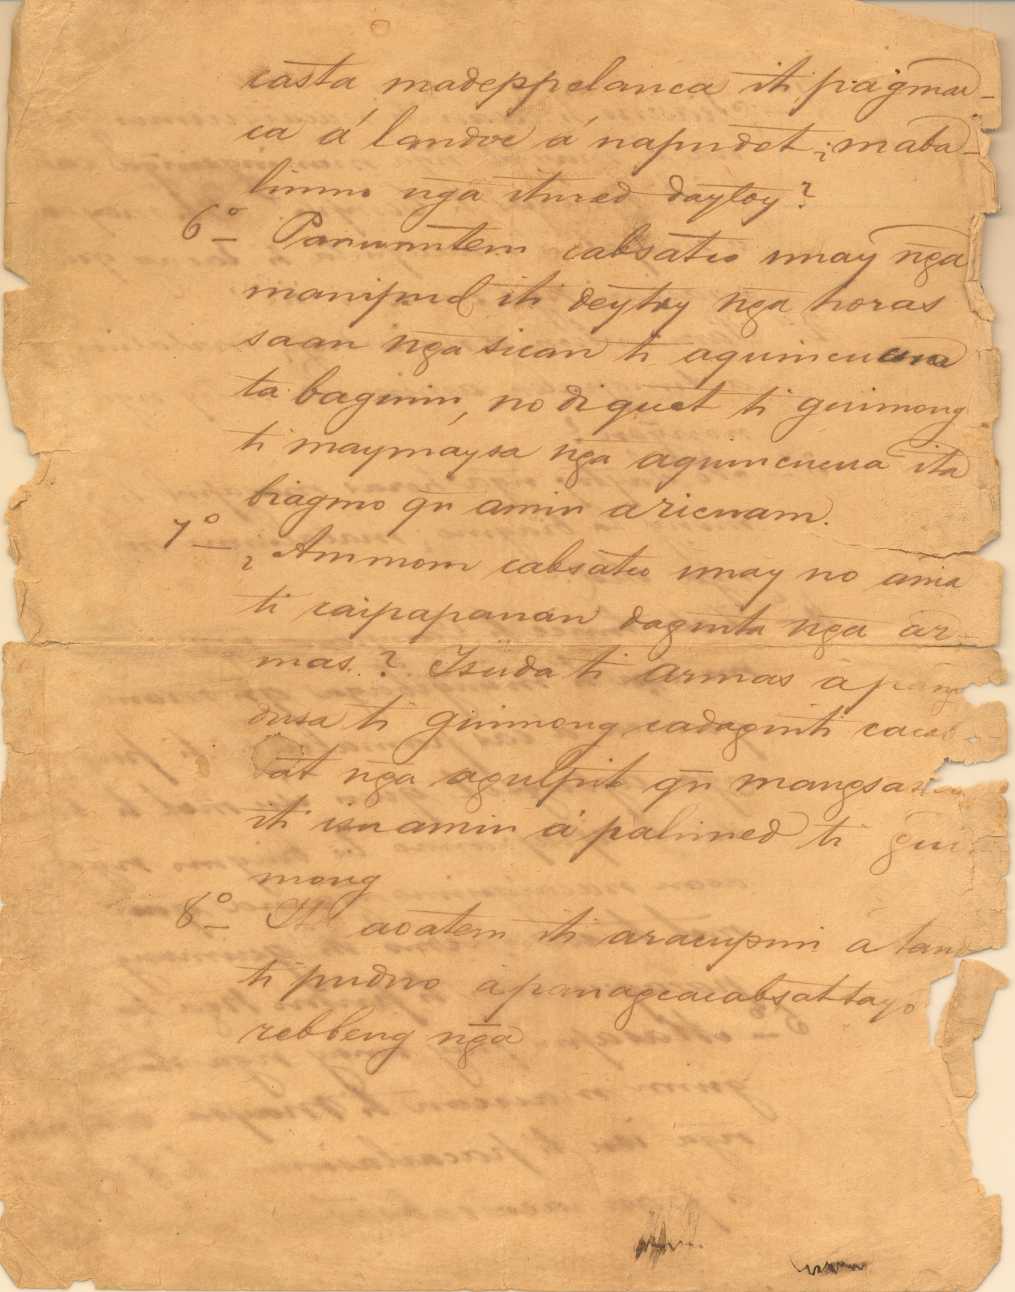 casta madeppelanca iti pagmai-
ca á landoc á napudot, ¿maba-
limmo nga itured daytoy?
6º — Panunutem cabsatco unay nga
manipud iti deytoy nga horas
saan nga sican ti aquincucua
ta baguim, no di quet ti guimong
ti maymaysa nga aquincucua ita
biagmo qn amin aricuam.
7º — ¿Ammom cabsatco unay no ania
ti caipapanan dagiuta nga ar-
mas? Isuda ti armas á pang
dusa ti guimong cadaguiti cacab
sat nga agulpit qn mangsa
iti isu amin á palimed ti gui
mong
8º — aoatem iti aracupmi á
ti pudno á panagcacabsattayo
rebbeng nga